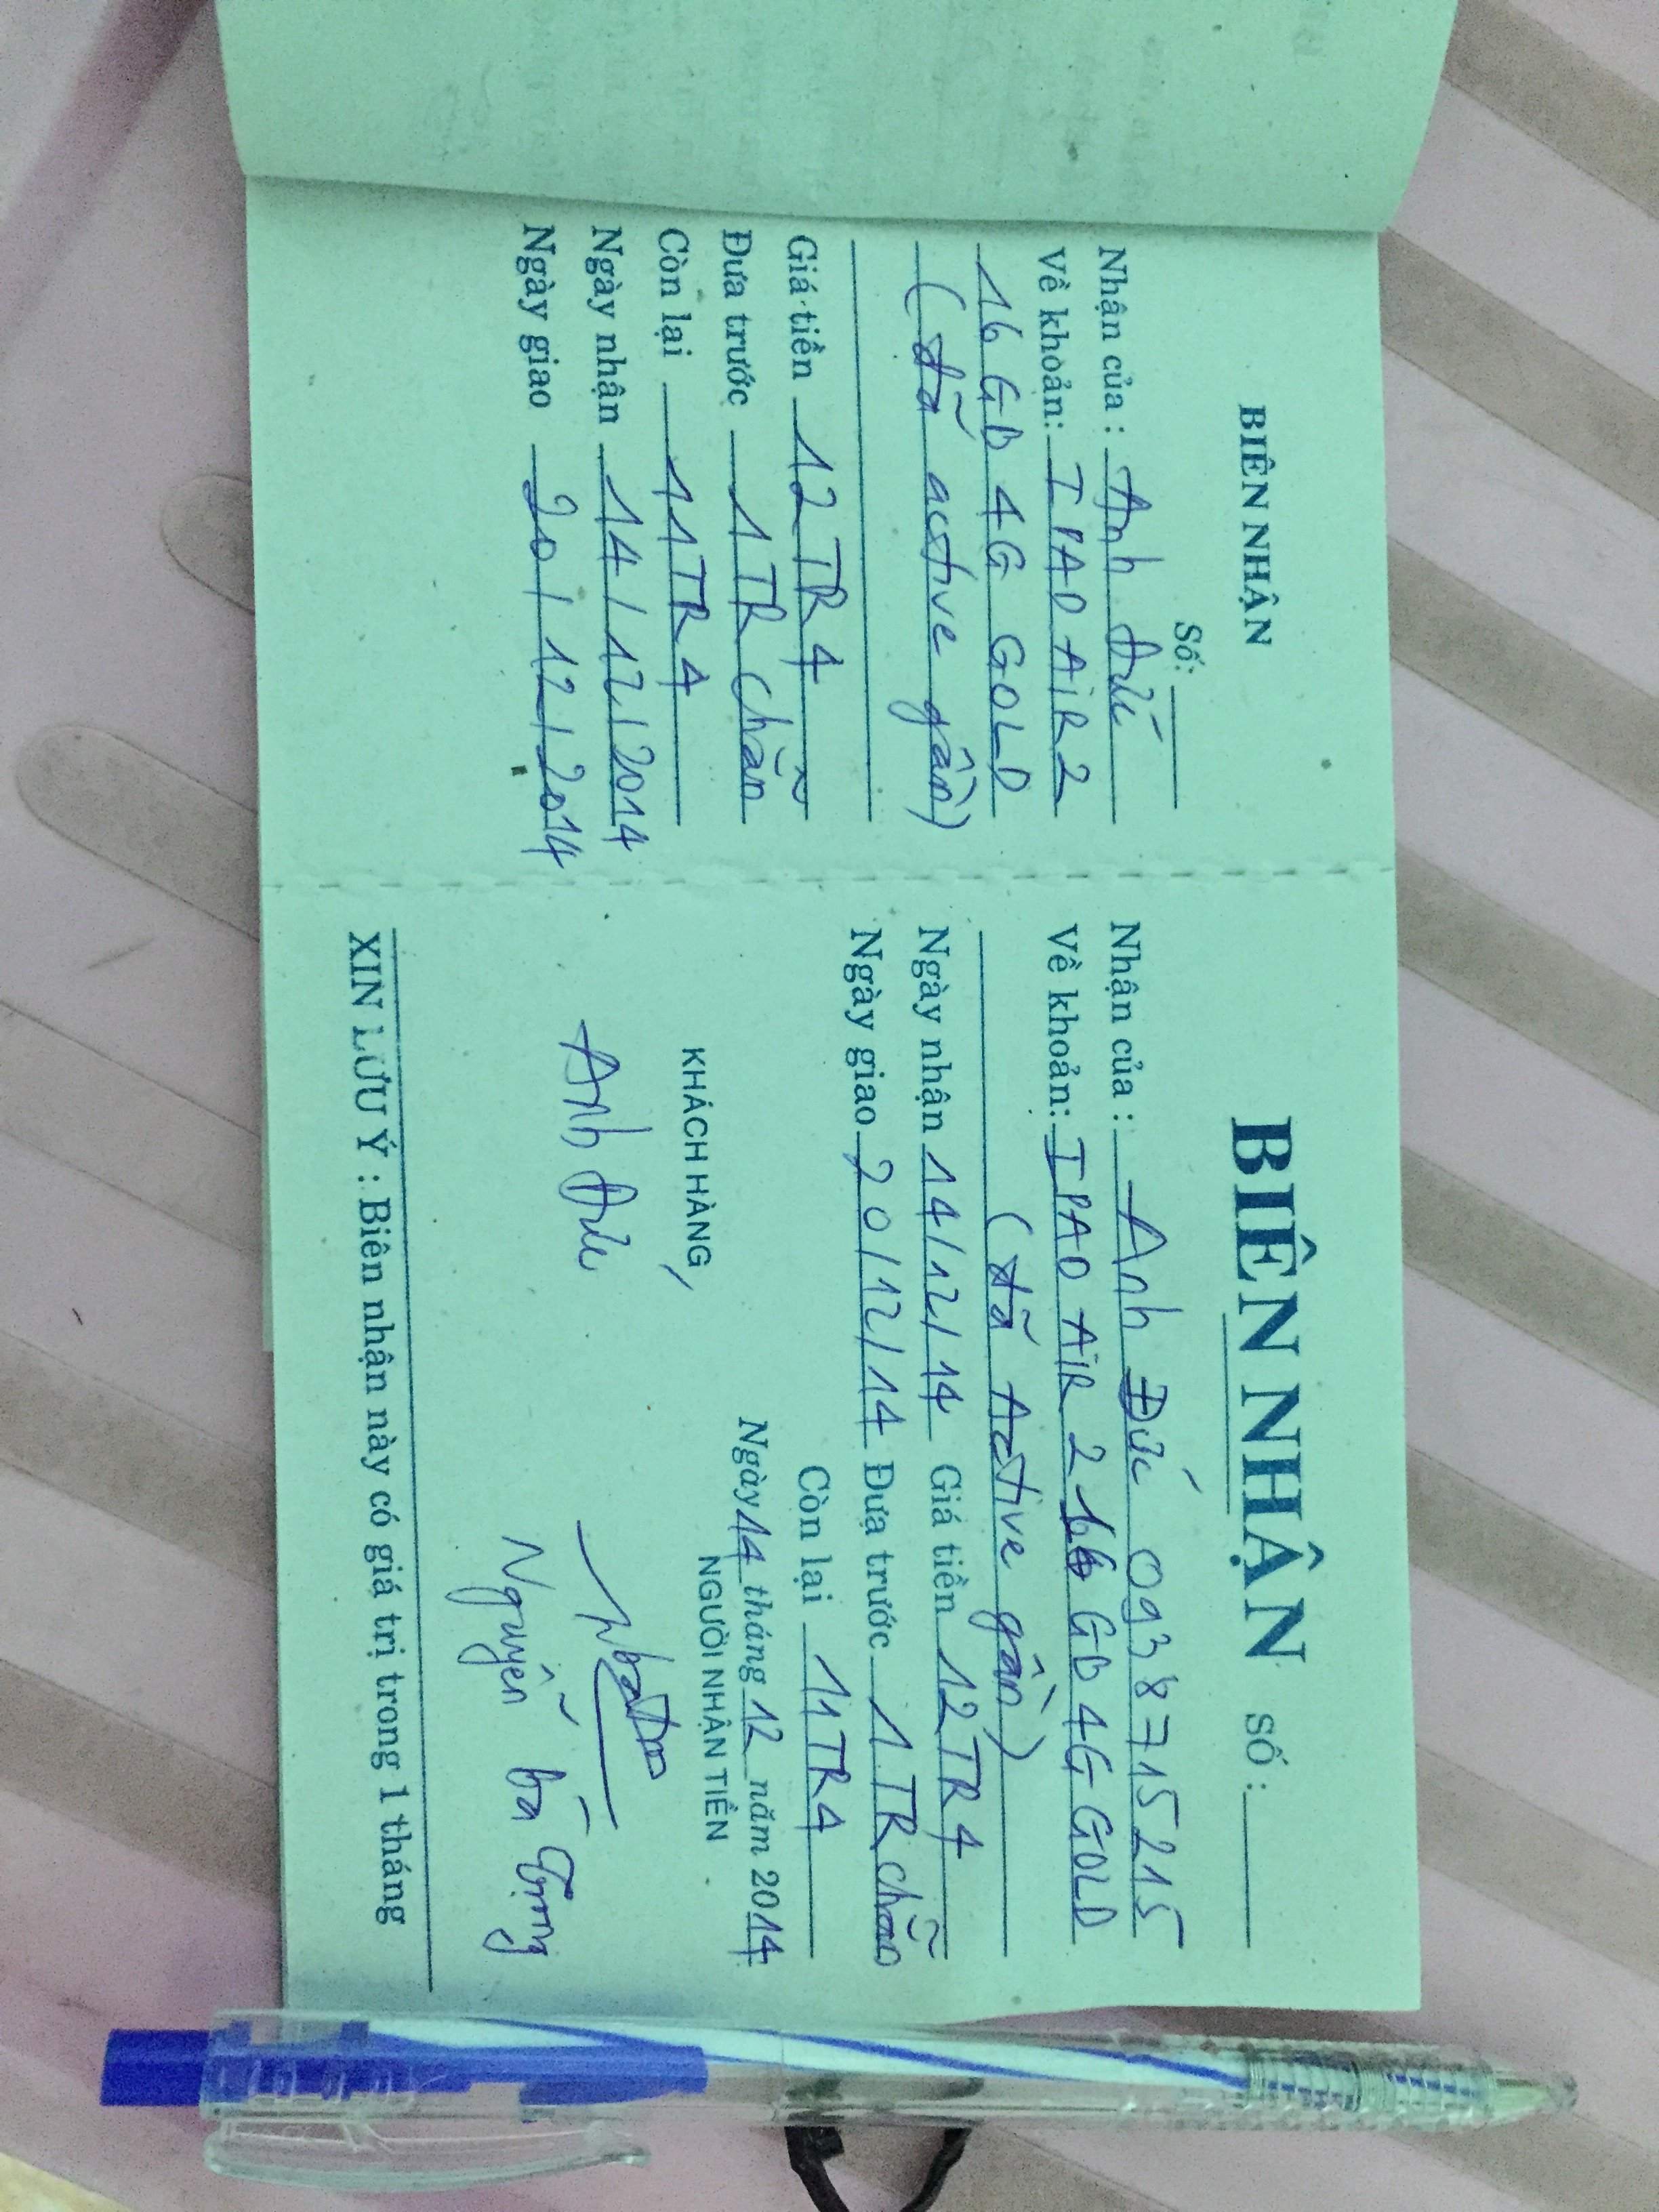 BIÊN NHẬN
Số:
Nhận của : Anh Đức
Về khoản: IPAD AiR 2
16 GB 4G GOLD
(đã active gần)
Giá tiền 12 TR 4
Đưa trước 1 TR chẵn
Còn lại 11 TR 4
Ngày nhận 14/12/2014
Ngày giao 20/12/2014
BIÊN NHẬN SỐ :
Nhận của : Anh Đức 0938715215
Về khoản: IPAD AiR 2 16 GB 4G GOLD
(đã Active gần)
Ngày nhận 14/12/14 Giá tiền 12 TR 4
Ngày giao 20/12/14 Đưa trước 1 TR chẵn
Còn lại 11 TR 4
Ngày 14 tháng 12 năm 2014
KHÁCH HÀNG, NGƯỜI NHẬN TIỀN
Anh Đức
Nguyễn bá
XIN LƯU Ý : Biên nhận này có giá trị trong 1 tháng